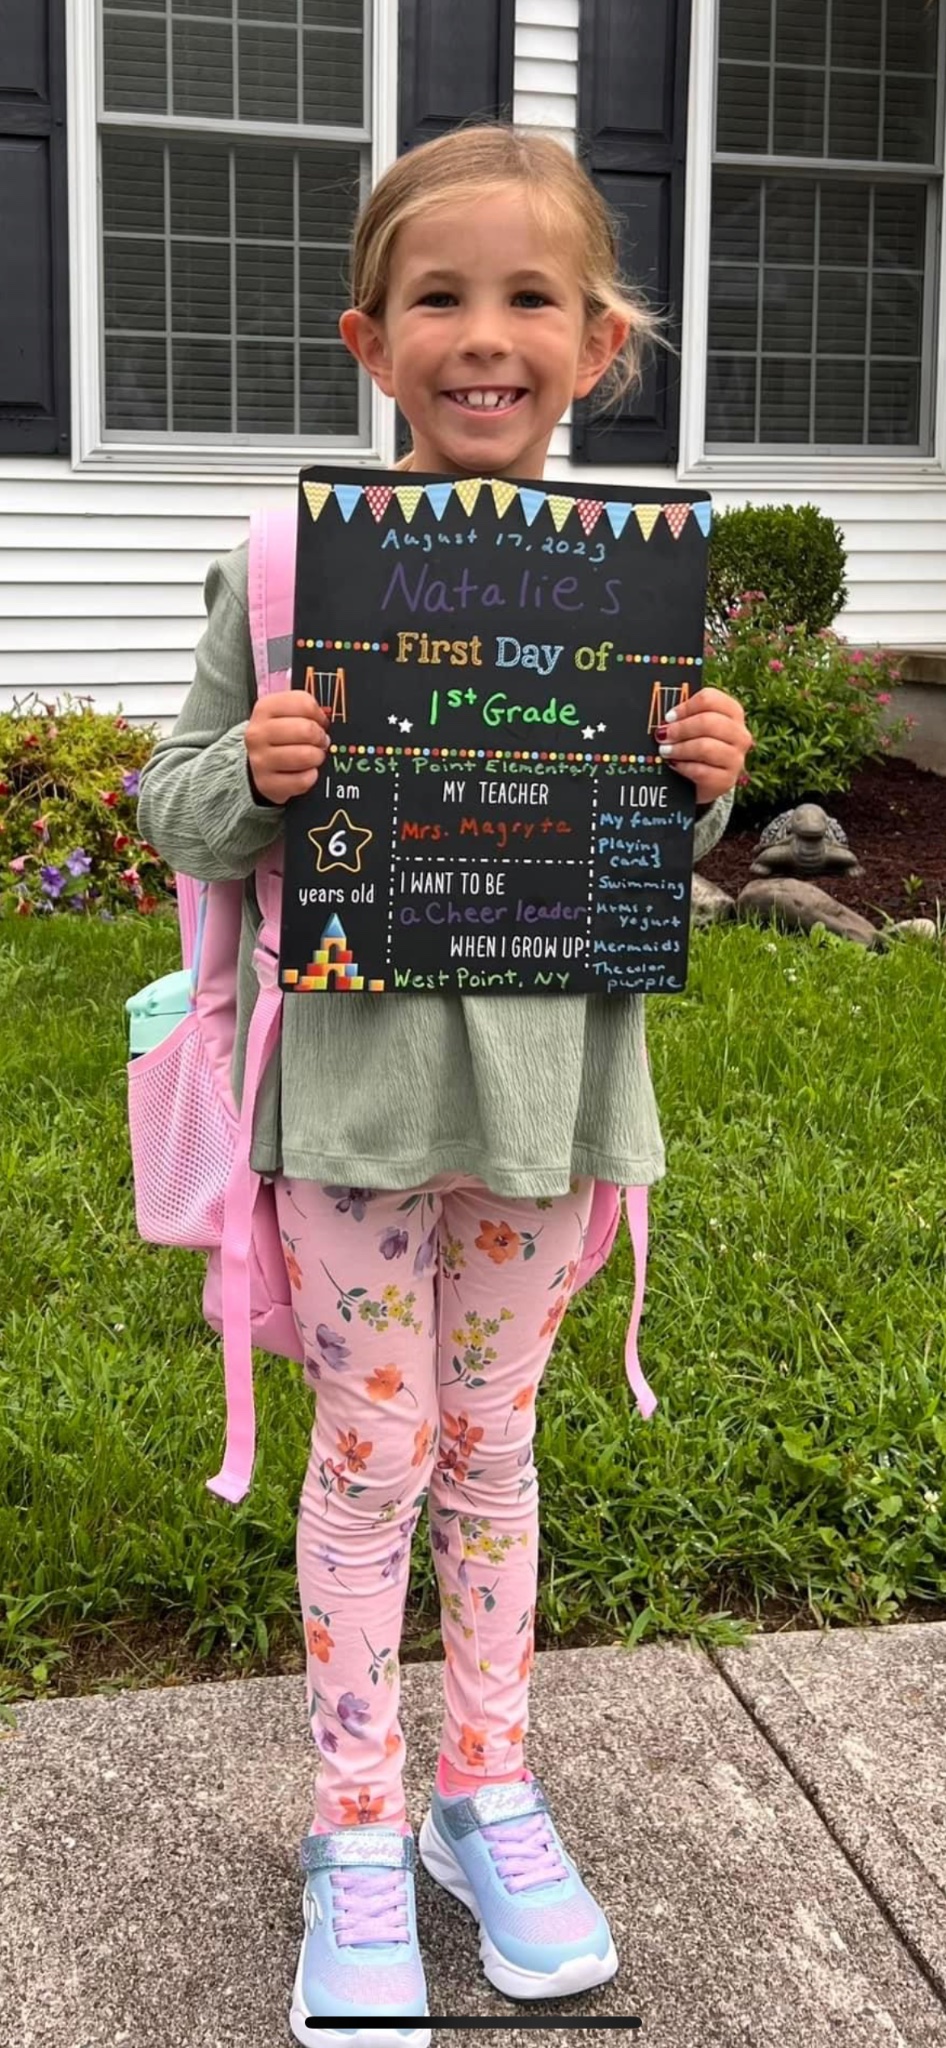 August 17, 2023
Natalie's
First Day of
1st Grade
West Point Elementary School
I am
6
years old
MY TEACHER
Mrs. Magryta
I WANT TO BE
a Cheer leader
WHEN I GROW UP!
West Point, NY
I LOVE
My family
Playing
cards
Swimming
M+Ms +
Yogurt
Mermaids
The color
purple